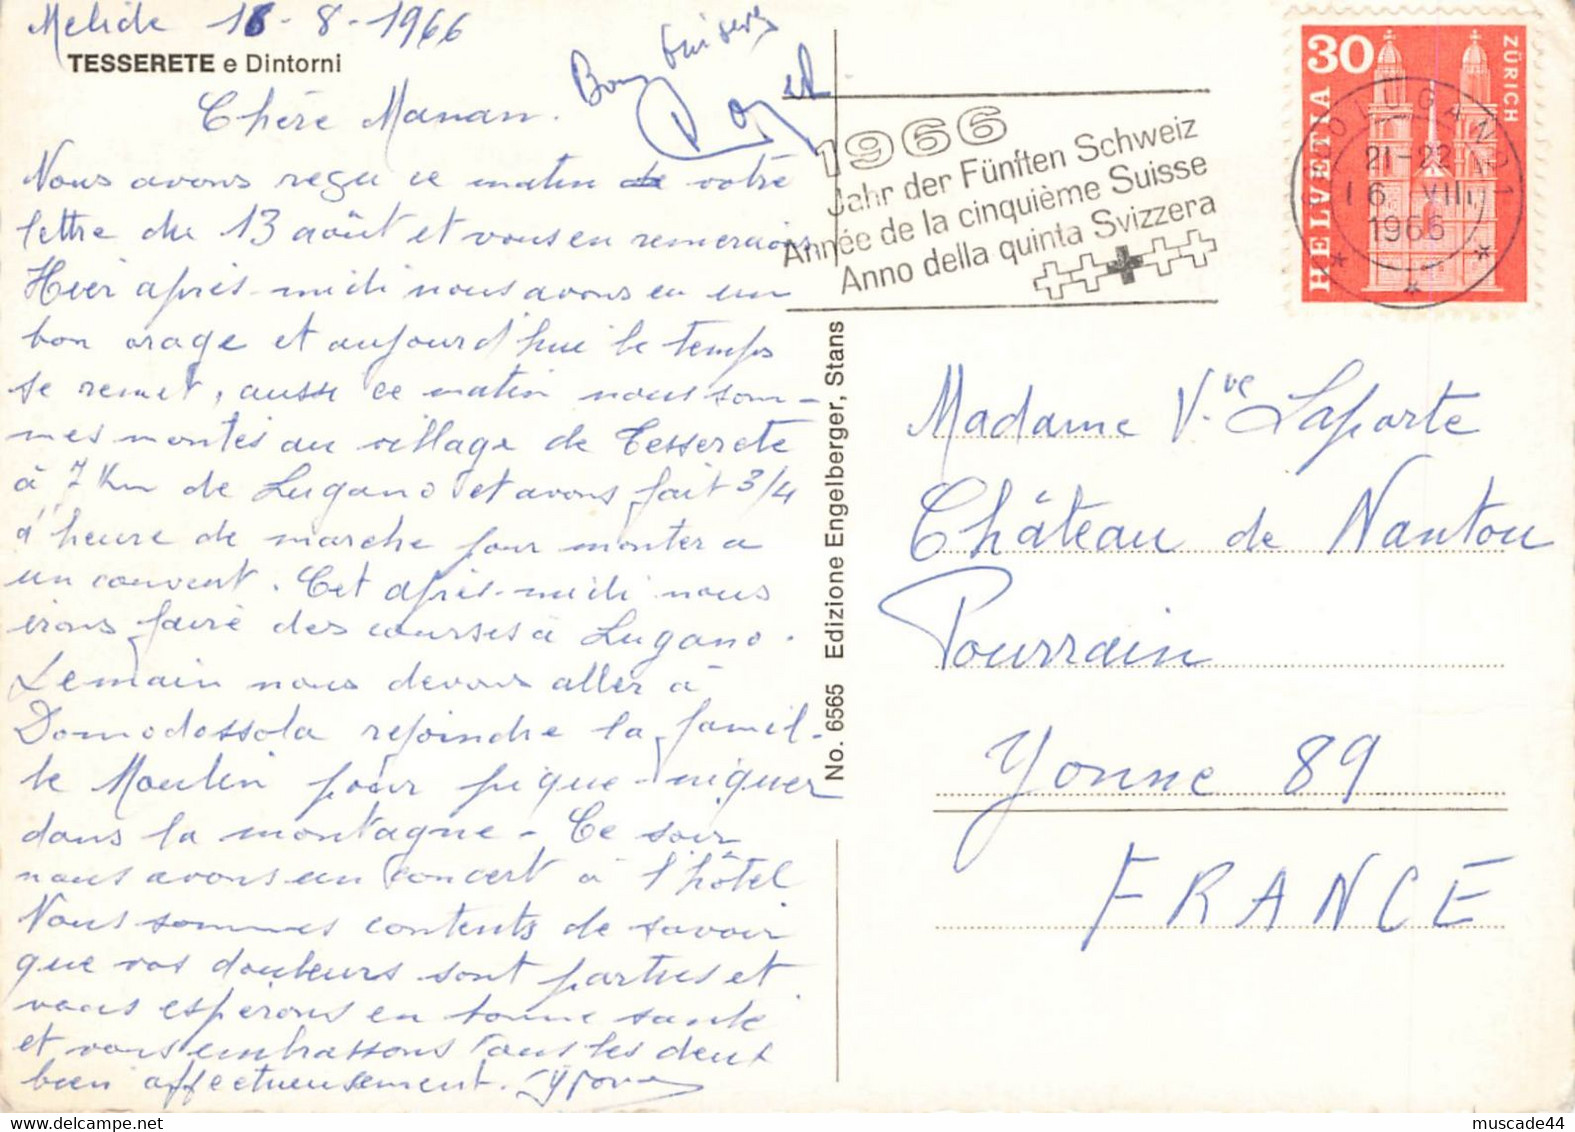 Melide 16-8-1966
TESSERETE e Dintorni
Bons baisers
Chère Maman.
Nous avons reçu ce matin votre
lettre du 13 août et vous en remercions
Hier après-midi nous avons eu un
bon orage et aujourd'hui le temps
se remet, aussi ce matin nous som-
mes montés au village de Tesserete
à 7 Km de Lugano et avons fait 3/4
d'heure de marche pour monter a
un couvent. Cet après-midi nous
irons faire des courses à Lugano.
Demain nous devons aller à
Domodossola rejoindre la famil-
le Moulin pour pique-niquer
dans la montagne - Ce soir
nous avons un concert à l'hôtel
Nous sommes contents de savoir
que vos douleurs sont parties et
vous espérons en bonne santé
et vous embrassons tous les deux
bien affectueusement. Yvonne
No. 6565 Edizione Engelberger, Stans
1966
Jahr der Fünften Schweiz
Année de la cinquième Suisse
Anno della quinta Svizzera
30
HELVETIA
ZÜRICH
LUGANO 1
21-22
16. VIII.
1966
Madame Vve Laporte
Château de Nantou
Pourrain
Yonne 89
FRANCE
muscade44